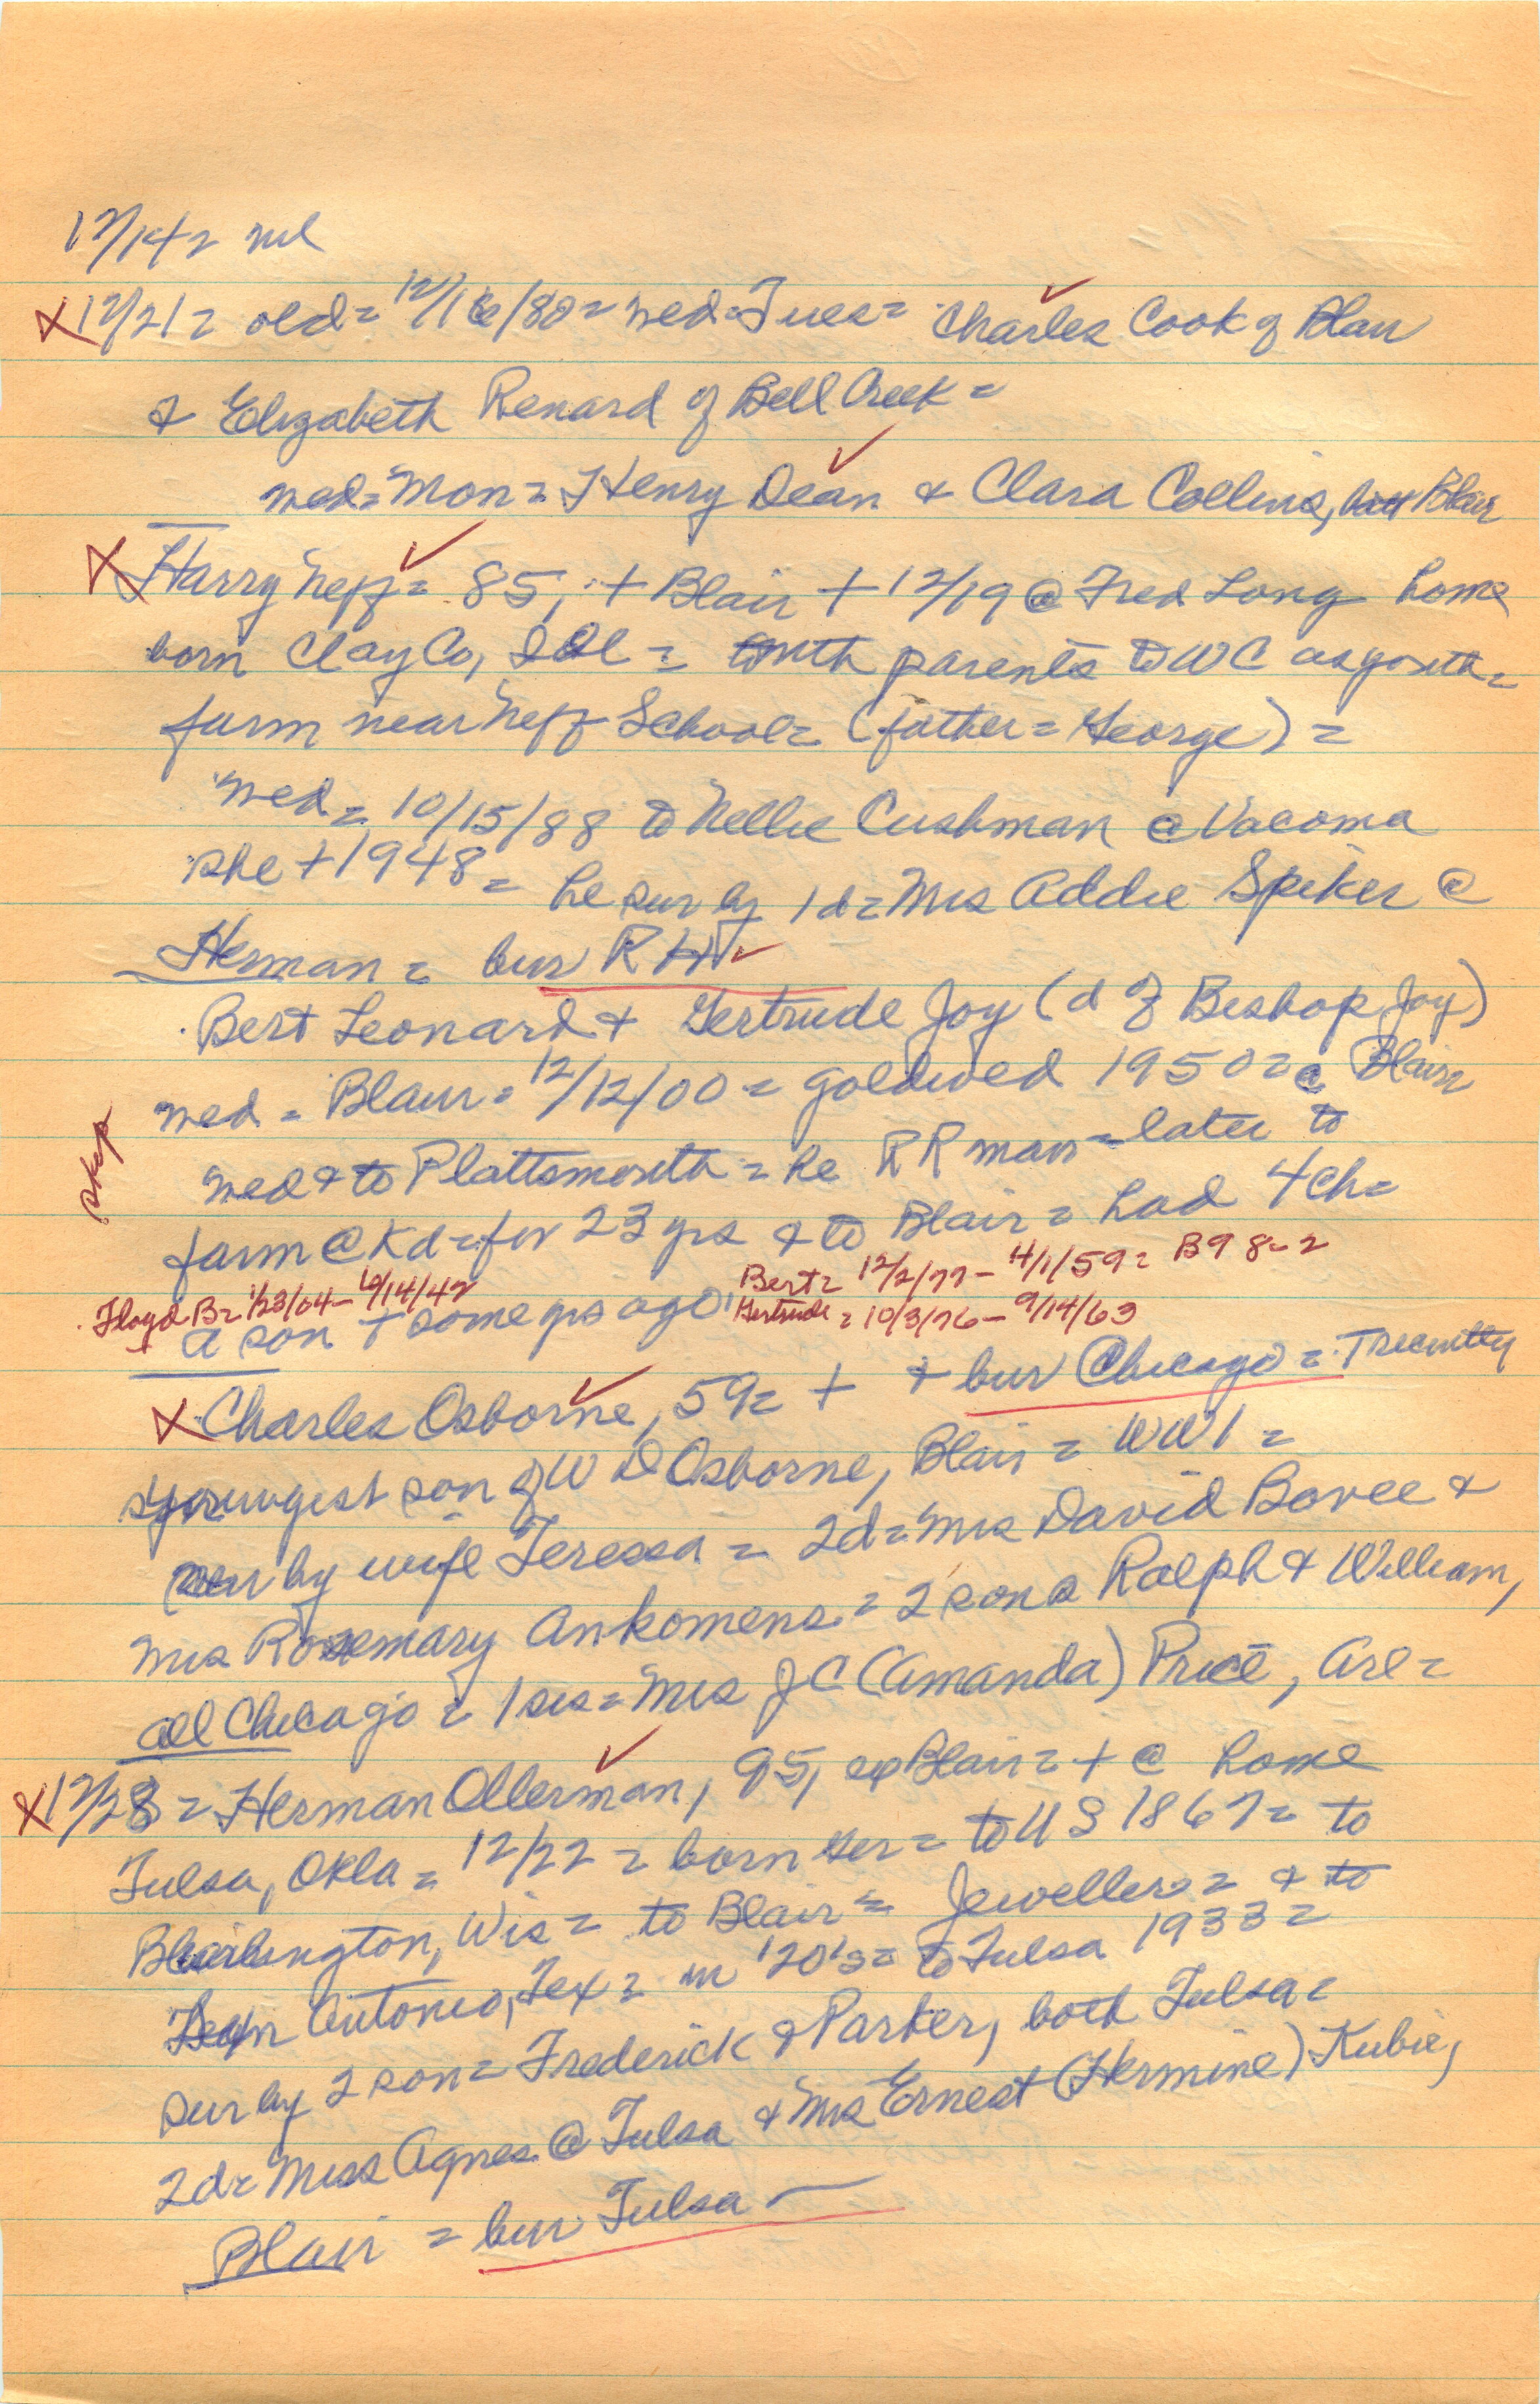 12/14 = nil
X 12/21 = old = 12/16/80 = wed = Tues = Charles Cook of Blair
& Elizabeth Renard of Bell Creek =
wed = Mon = Henry Dean & Clara Collins, both Blair
X Harry Neff = 85, + Blair + 12/19 @ Fred Long home
born Clay Co, Ill = with parents to WC as youth =
farm near Neff School = (father = George) =
wed = 10/15/88 to Nellie Cushman @ Vacoma
she + 1948 = he sur by 1 d = Mrs Addie Spiker @
Herman = bur RH
Bert Leonard & Gertrude Joy (d of Bishop Joy)
wed = Blair = 12/12/00 = gold wed 1950 = @ Blair
wed & to Plattsmouth = he RR man = later to
skip
farm @ Kd = for 23 yrs & to Blair = had 4 ch =
Bert = 12/2/77 - 4/1/59 = B9 8-2
Floyd B = 1/23/04 - 6/14/42
Gertrude = 10/3/76 - 9/14/63
a son + some yrs ago
X Charles Osborne, 59 = + & bur @ Chicago = recently
youngest son of W D Osborne, Blair = WW1 =
sur by wife Teressa = 2d = Mrs David Bovee &
Mrs Rosemary Ankomens = 2 sons Ralph & William,
all Chicago = 1 sis = Mrs J C (Amanda) Price, Arl =
X 12/28 = Herman Ollerman, 95, ex Blair = + @ home
Tulsa, Okla = 12/22 = born Ger = to US 1867 = to
Burlington, Wis = to Blair = Jeweller = & to
San Antonio, Tex = in '20's = to Tulsa 1933 =
sur by 2 son = Frederick & Parker, both Tulsa =
2d = Miss Agnes @ Tulsa & Mrs Ernest (Hermine) Kubie,
Blair = bur Tulsa